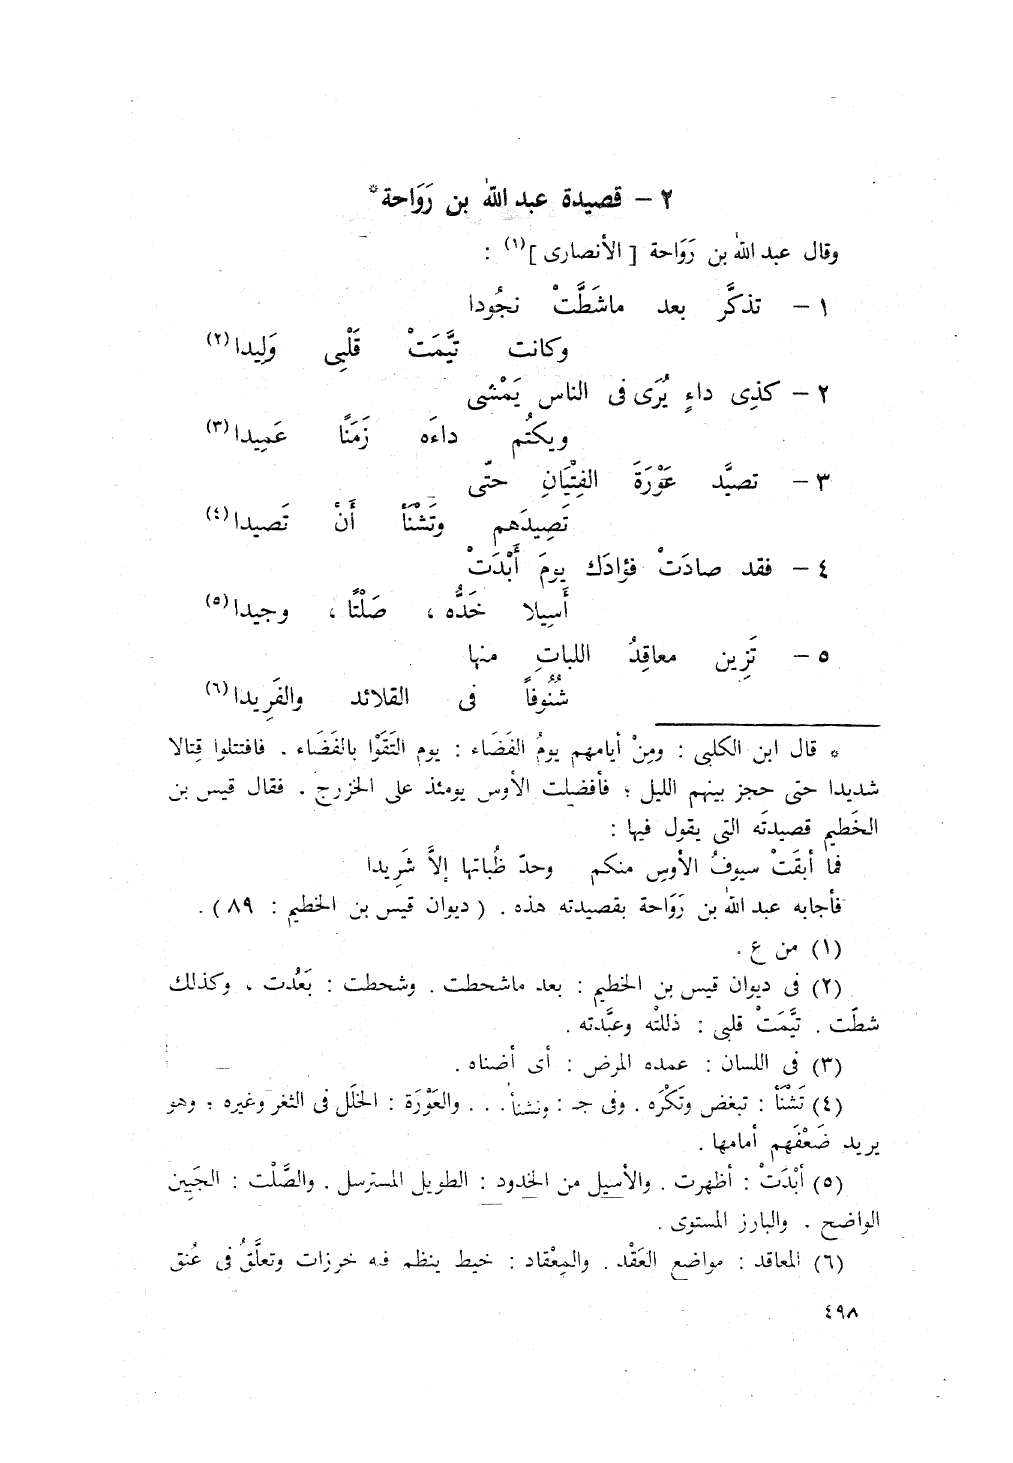 ٢ – قصيدة عبد الله بن رَوَاحة*
وقال عبد الله بن رَوَاحة [ الأنصارى ](١) :
١ – تذكَّر بعد ماشَطَّتْ نجُودا
وكانت تيَّمَتْ قَلْبِى وَلِيدا(٢)
٢ – كذِى داءٍ يُرَى فى الناس يَمْشى
ويكتُم داءَه زَمَنًا عَمِيدا(٣)
٣ – تصيَّد عَوْرَةَ الفِتْيَانِ حتّى
تَصِيدَهم وتَشْنَأ أَنْ تَصيدا(٤)
٤ – فقد صادَتْ فؤادَك يومَ أَبْدَتْ
أَسِيلا خَدُّه ، صَلْتًا ، وجيدا(٥)
٥ – تَزِين معاقِدُ اللباتِ منها
شُنُوفاً فى القلائد والفَرِيدا(٦)
* قال ابن الكلبى : ومِنْ أيامهم يومُ الفَضَاء : يوم التَقَوْا بالفَضَاء . فاقتتلوا قِتالا
شديدا حتى حجز بينهم الليل ؛ فأفضلت الأوس يومئذ على الخزرج . فقال قيس بن
الخَطيم قصيدتَه التى يقول فيها :
فما أبقَتْ سيوفُ الأوسِ منكم وحدّ ظُباتها إلاَّ شَرِيدا
فأجابه عبد الله بن رَوَاحة بقصيدته هذه . ( ديوان قيس بن الخطيم : ٨٩ ) .
(١) من ع .
(٢) فى ديوان قيس بن الخطيم : بعد ماشحطت . وشحطت : بَعُدت ، وكذلك
شطّت . تيَّمَتْ قلبى : ذللتْه وعبَّدته .
(٣) فى اللسان : عمده المرض : أى أضناه .
(٤) تَشْنَأ : تبغض وتَكْرَه . وفى جـ : ونشنأ . . . والعَوْرَة : الخلَل فى الثغر وغيره ؛ وهو
يريد ضَعْفَهم أمامها .
(٥) أبْدَتْ : أظهرت . والأسيل من الخدود : الطويل المسترسل . والصَّلْت : الجَبِين
الواضح . والبارز المستوى .
(٦) المعاقد : مواضع العَقْد . والمِعْقاد : خيط ينظم فيه خرزات وتعلَّقُ فى عُنق
٤٩٨